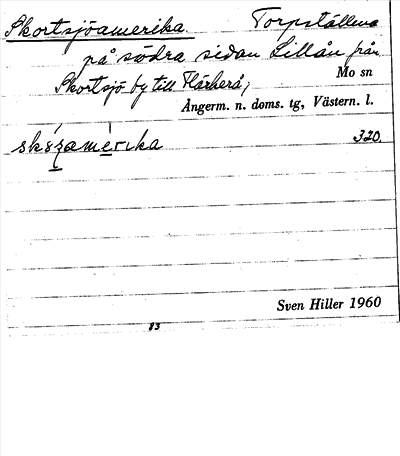 Skortsjöamerika. Torpställena
på södra sidan Lillån från
Mo sn
Skortsjö by till Härherå,
Ångerm. n. doms. tg, Västern. l.
320.
Sven Hiller 1960